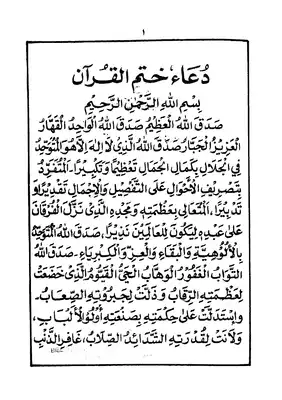 ١
دُعَاء ختم القرآن
بِسْمِ اللهِ الرَّحْمٰنِ الرَّحِيْمِ
صَدَقَ اللهُ الْعَظِيْمُ صَدَقَ اللهُ الْوَاحِدُ الْقَهَّارُ
الْعَزِيْزُ الْجَبَّارُ صَدَقَ اللهُ الَّذِيْ لَا اِلٰهَ اِلَّا هُوَ الْمُتَوَحِّدُ
فِي الْجَلَالِ بِكَمَالِ الْجَمَالِ تَعْظِيْمًا وَتَكْبِيْرًا، الْمُتَفَرِّدُ
بِتَصْرِيْفِ الْاَحْوَالِ عَلَى التَّفْصِيْلِ وَالْاِجْمَالِ تَقْدِيْرًا وَ
تَدْبِيْرًا، الْمُتَعَالِيْ بِعَظَمَتِهٖ وَمَجْدِهِ الَّذِيْ نَزَّلَ الْفُرْقَانَ
عَلٰى عَبْدِهٖ لِيَكُوْنَ لِلْعَالَمِيْنَ نَذِيْرًا، صَدَقَ اللهُ الْمُتَوَحِّدُ
بِالْاُلُوْهِيَّةِ وَالْبَقَاءِ وَالْعِزِّ وَالْكِبْرِيَاءِ. صَدَقَ اللهُ
التَّوَّابُ الْغَفُوْرُ الْوَهَّابُ الْحَيُّ الْقَيُّوْمُ الَّذِيْ خَضَعَتْ
لِعَظَمَتِهِ الرِّقَابُ وَذَلَّتْ لِجَبَرُوْتِهِ الصِّعَابُ.
وَاسْتَدَلَّتْ عَلٰى حِكْمَتِهٖ بِصَنْعَتِهٖ اُولُو الْاَلْبَابِ،
وَلَانَتْ لِقُدْرَتِهِ الشَّدَائِدُ الصِّلَابُ، غَافِرِ الذَّنْبِ